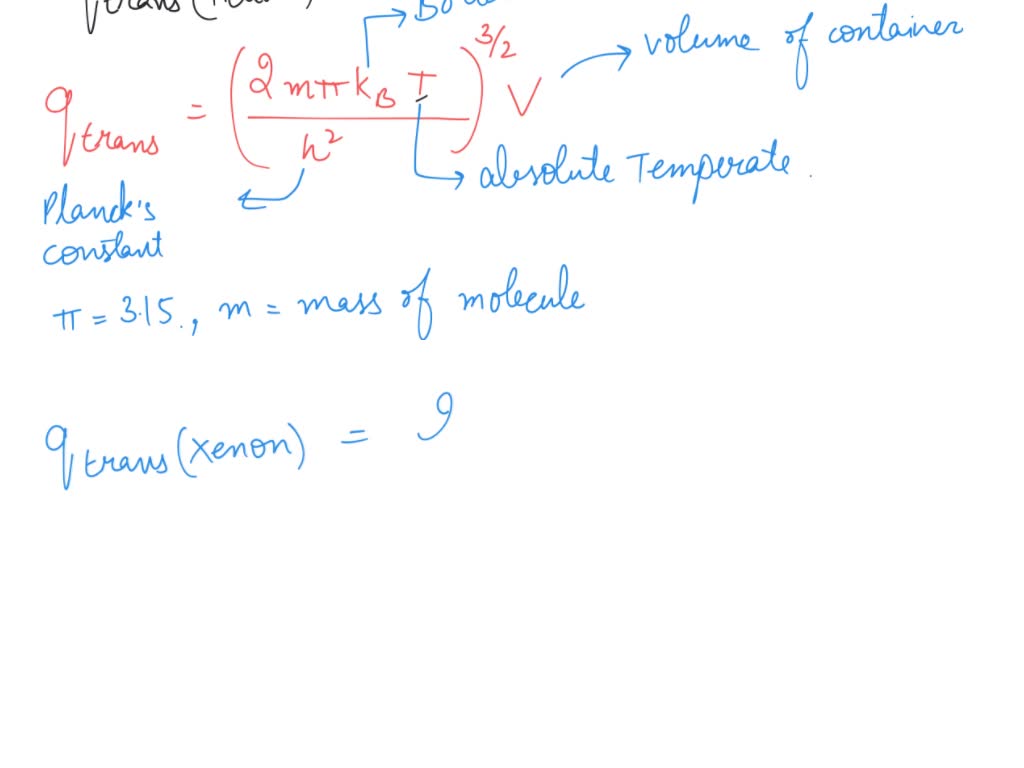 q trans = (2 m π k_B T / h²)^3/2 V → volume of container
→ absolute Temperate.
Planck's
constant
π = 3.15., m = mass of molecule
q trans (xenon) = 9